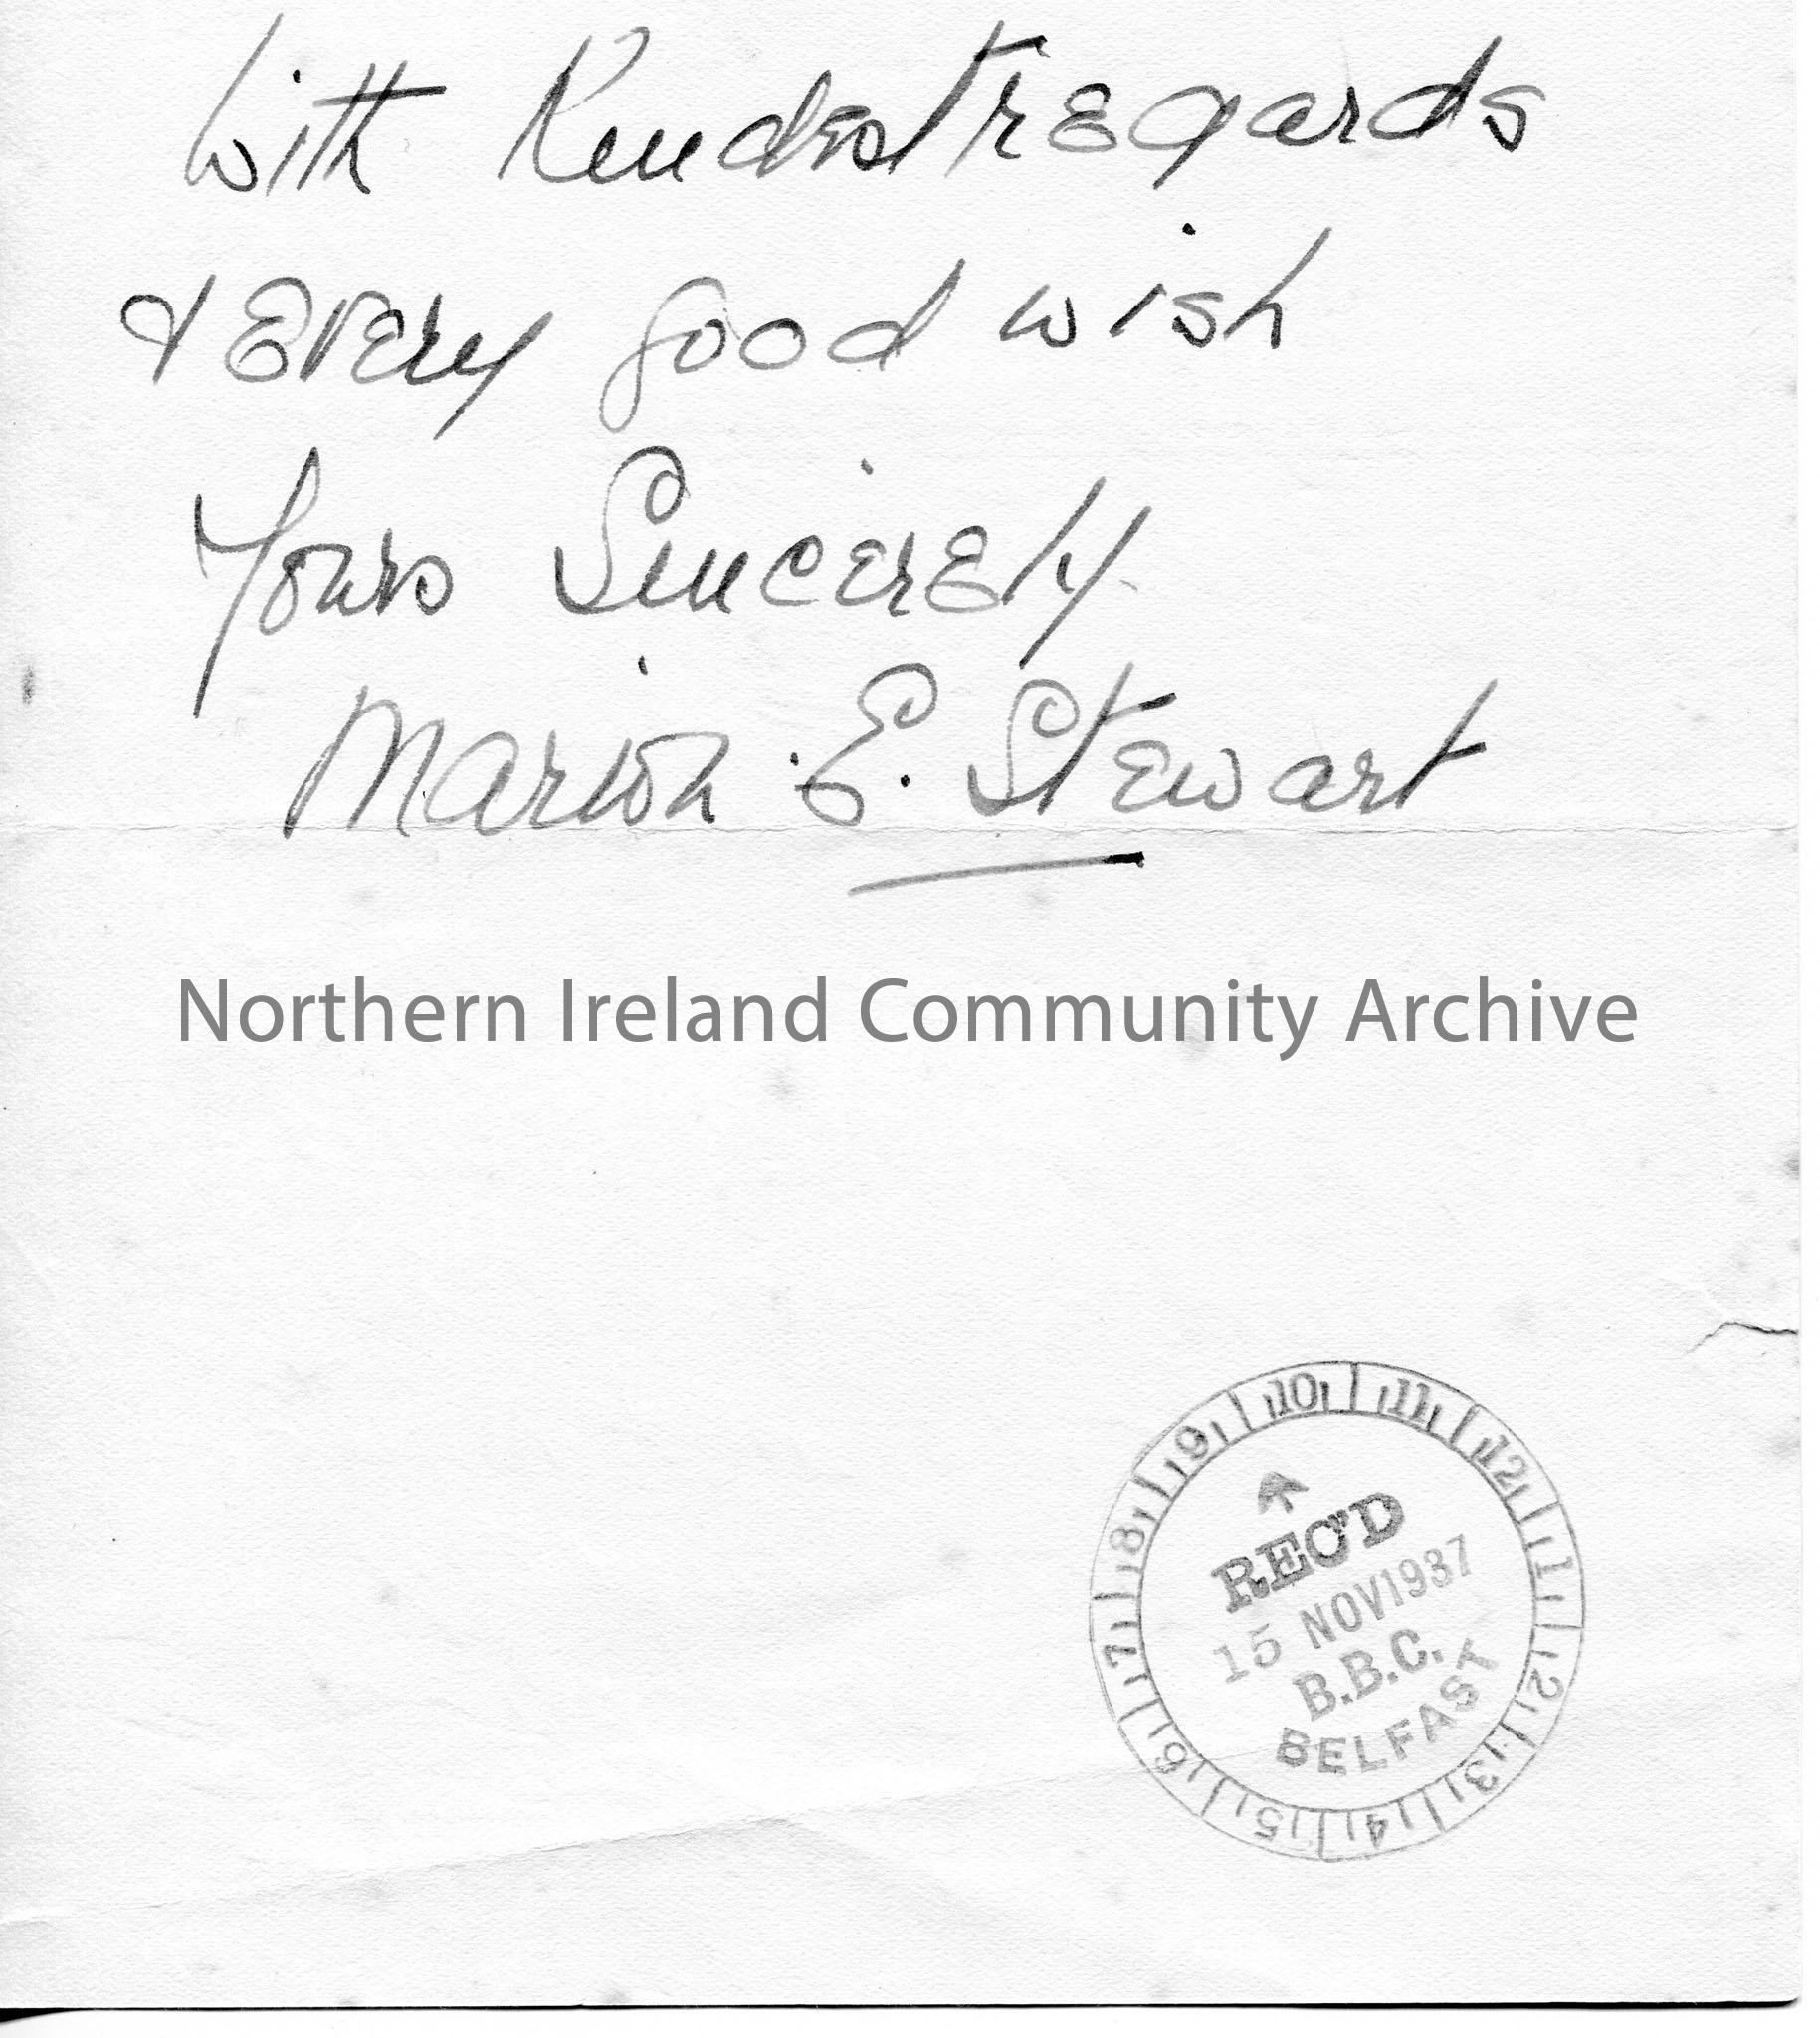 With Kindest regards
& Every good wish
Yours Sincerely
Marion . E. Stewart
Northern Ireland Community Archive
9 10 11 12 1 2 3 4 5 6 7 8
REC'D
15 NOV 1937
B.B.C.
BELFAST